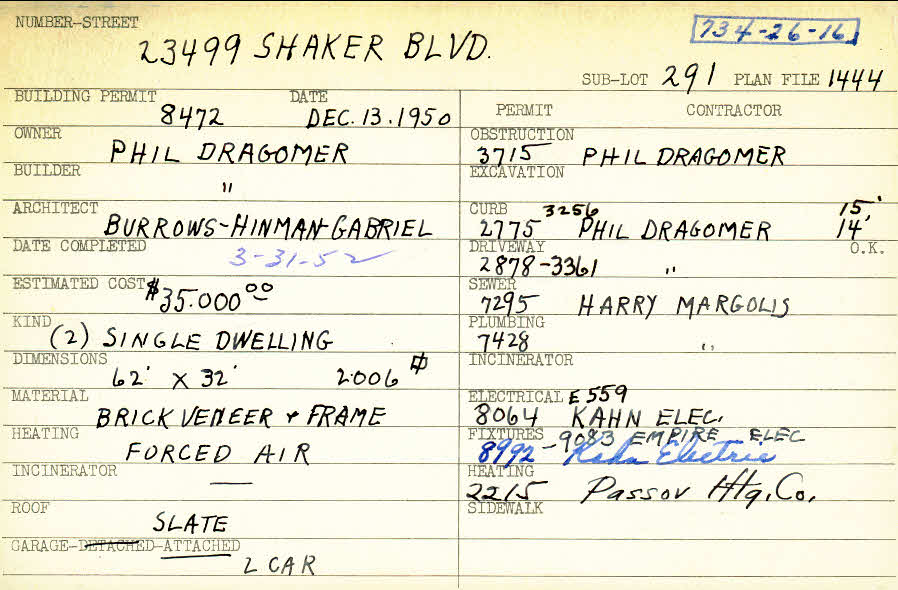 NUMBER-STREET
23499 SHAKER BLVD.
734-26-16
SUB-LOT 291 PLAN FILE 1444
BUILDING PERMIT DATE
8472 DEC. 13. 1950
OWNER
PHIL DRAGOMER
BUILDER
"
ARCHITECT
BURROWS-HINMAN-GABRIEL
DATE COMPLETED
3-31-52
ESTIMATED COST
$35.000 00
KIND
(2) SINGLE DWELLING
DIMENSIONS
62' X 32' 2006
MATERIAL
BRICK VENEER + FRAME
HEATING
FORCED AIR
INCINERATOR
—
ROOF
SLATE
GARAGE-DETACHED-ATTACHED
2 CAR
PERMIT CONTRACTOR
OBSTRUCTION
3715 PHIL DRAGOMER
EXCAVATION
CURB 3256 15'
2775 PHIL DRAGOMER 14'
DRIVEWAY O.K.
2878-3361 "
SEWER
7295 HARRY MARGOLIS
PLUMBING
7428 "
INCINERATOR
ELECTRICAL E559
8064 KAHN ELEC.
FIXTURES -9083 EMPIRE ELEC
8992 Kahn Electric
HEATING
2215 Passov Htg. Co.
SIDEWALK